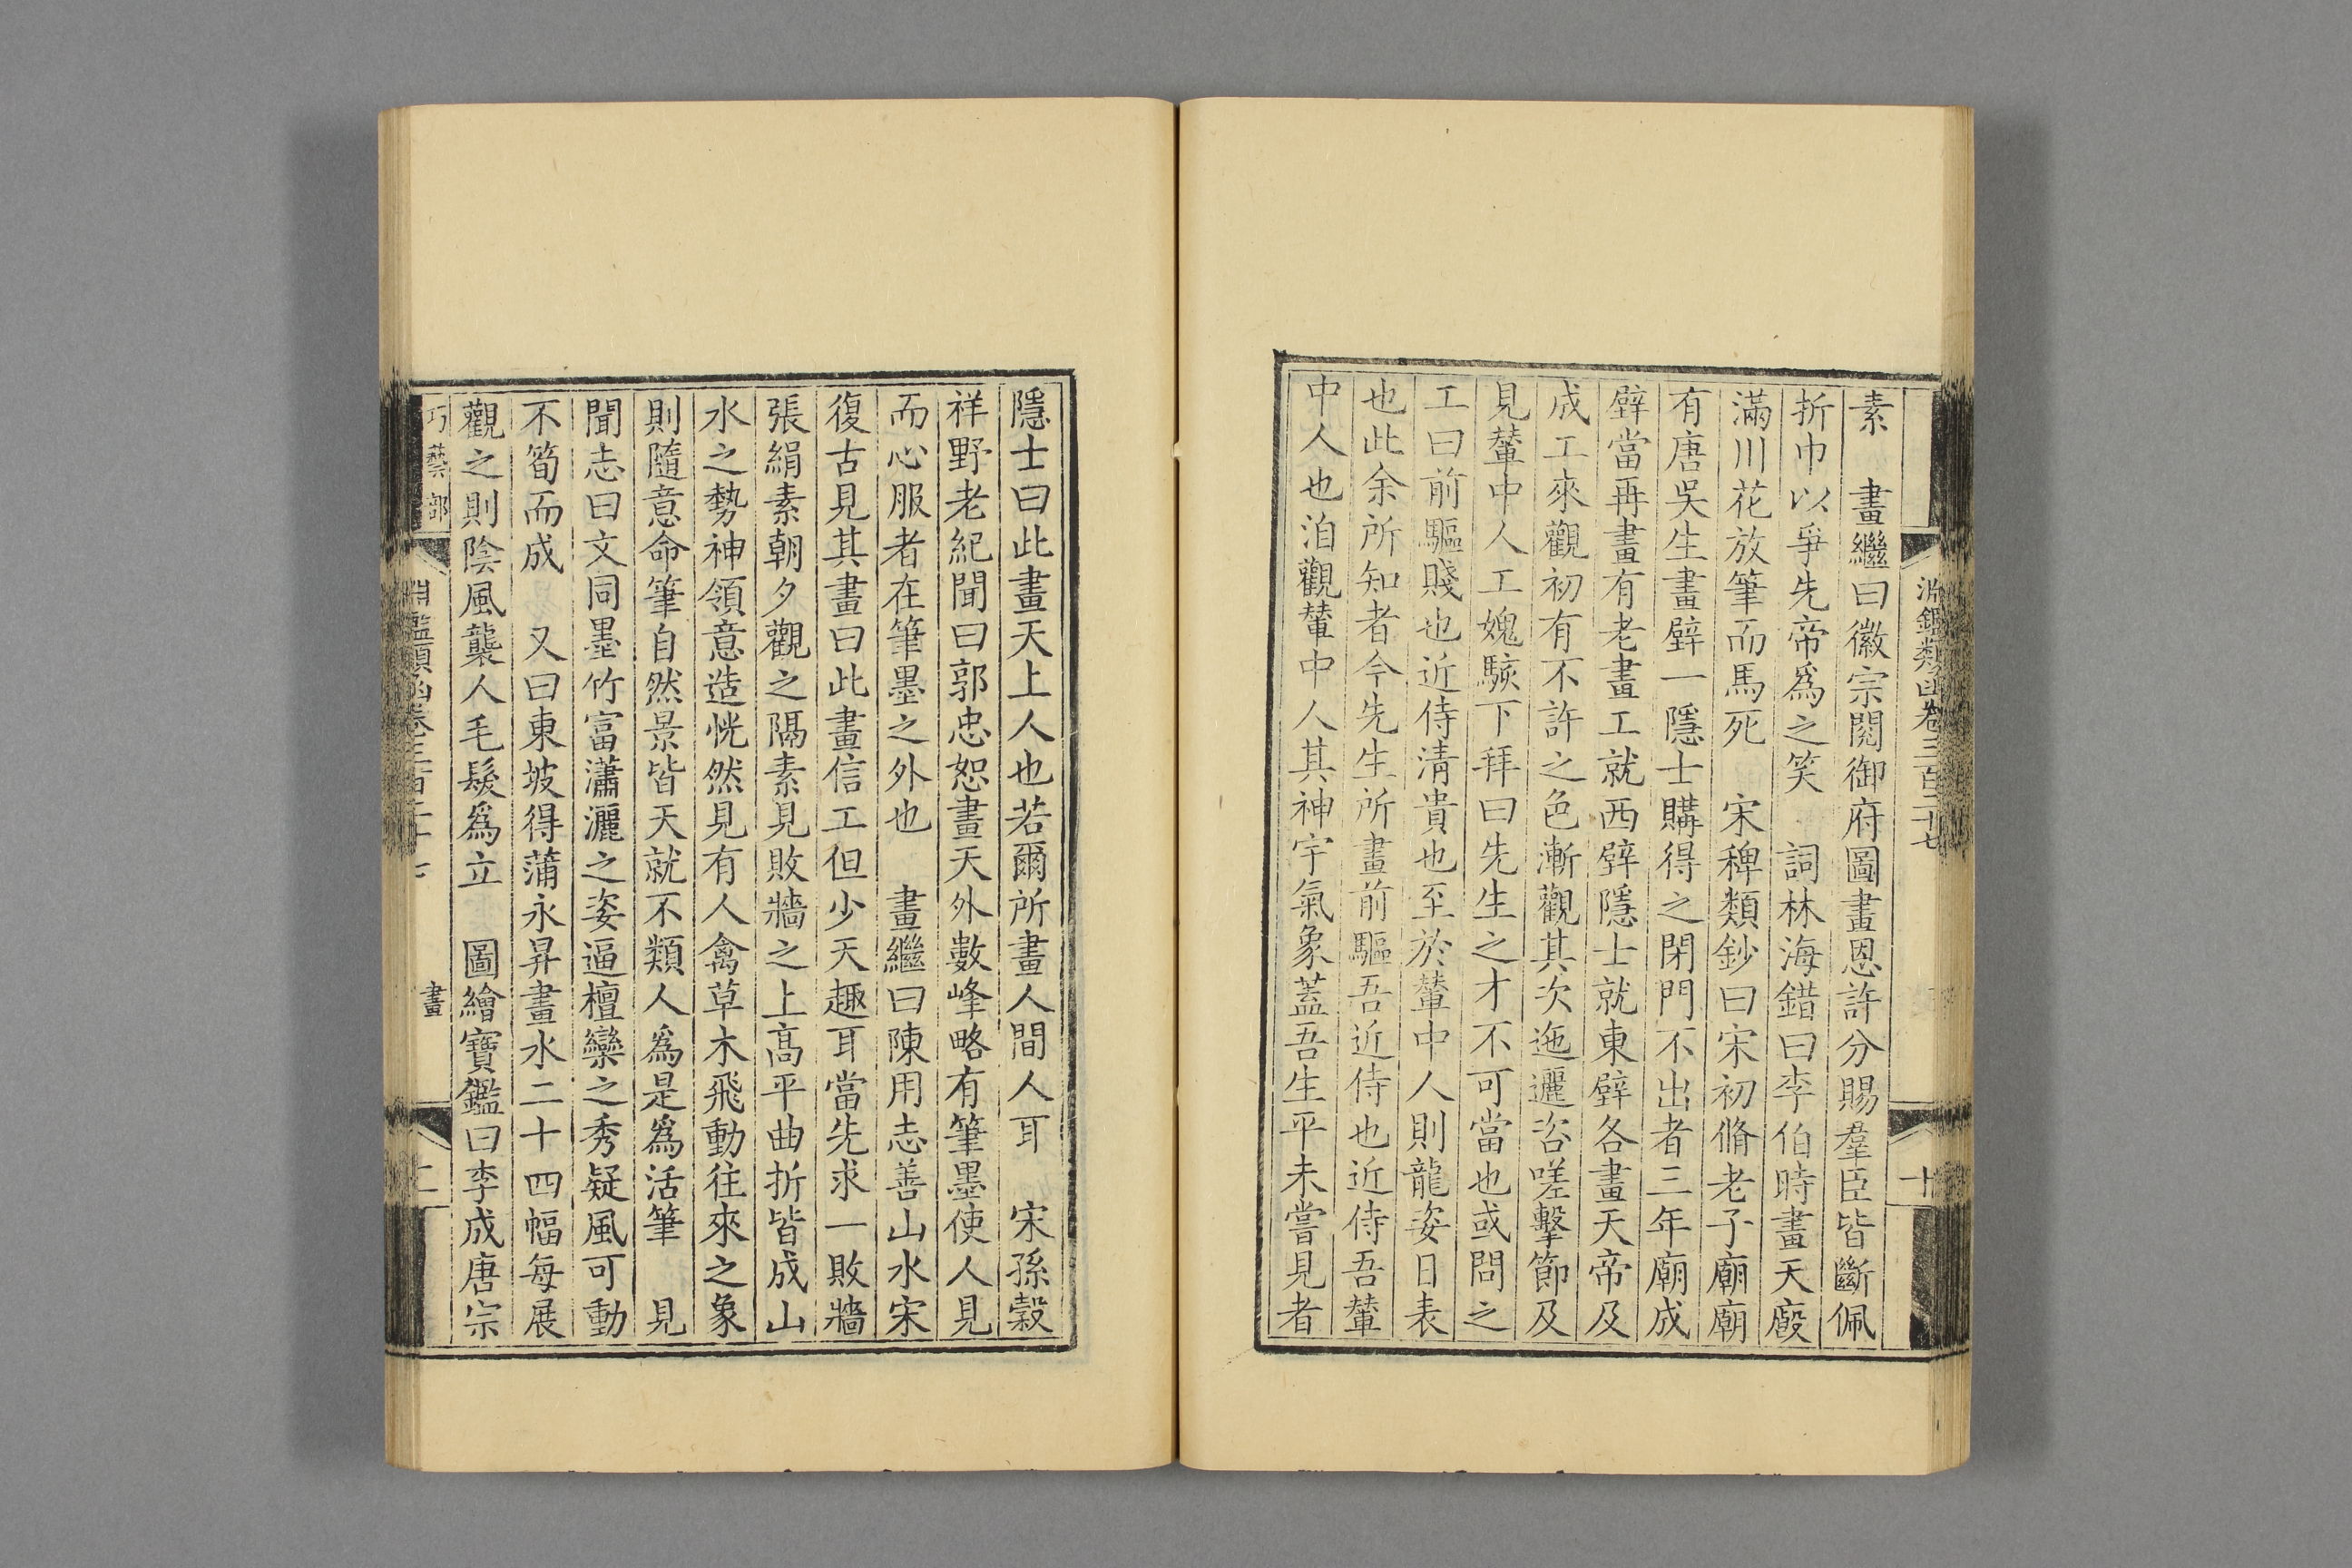 淵鑑類函卷三百二十七
十
素　畫繼曰徽宗閱御府圖畫恩許分賜羣臣皆斷佩
折巾以爭先帝爲之笑　詞林海錯曰李伯時畫天廄
滿川花放筆而馬死　宋稗類鈔曰宋初脩老子廟廟
有唐吳生畫壁一隱士購得之閉門不出者三年廟成
壁當再畫有老畫工就西壁隱士就東壁各畫天帝及
成工來觀初有不許之色漸觀其次迤邐咨嗟擊節及
見輦中人工媿駭下拜曰先生之才不可當也或問之
工曰前驅賤也近侍清貴也至於輦中人則龍姿日表
也此余所知者今先生所畫前驅吾近侍也近侍吾輦
中人也洎觀輦中人其神宇氣象蓋吾生平未嘗見者
隱士曰此畫天上人也若爾所畫人間人耳　宋孫穀
祥野老紀聞曰郭忠恕畫天外數峰略有筆墨使人見
而心服者在筆墨之外也　畫繼曰陳用志善山水宋
復古見其畫曰此畫信工但少天趣耳當先求一敗牆
張絹素朝夕觀之隔素見敗牆之上高平曲折皆成山
水之勢神領意造恍然見有人禽草木飛動往來之象
則隨意命筆自然景皆天就不類人爲是爲活筆　見
聞志曰文同墨竹富瀟灑之姿逼檀欒之秀疑風可動
不筍而成　又曰東坡得蒲永昇畫水二十四幅每展
觀之則陰風襲人毛髮爲立　圖繪寶鑑曰李成唐宗
巧藝部
淵鑑類函卷三百二十七
畫